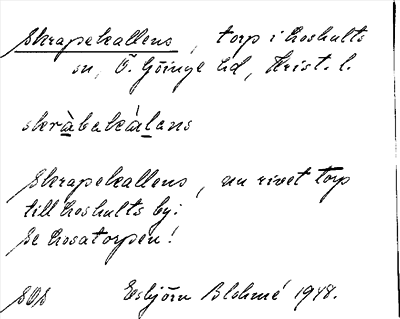 Skrapekallens, torp i Loshults
sn, Ö. Göinge hd, Krist. l.
skràbekálans
Skrapekallens, nu rivet torp
till Loshults by:
Se Losatorpen!
SOS Esbjörn Blohmé 1948.